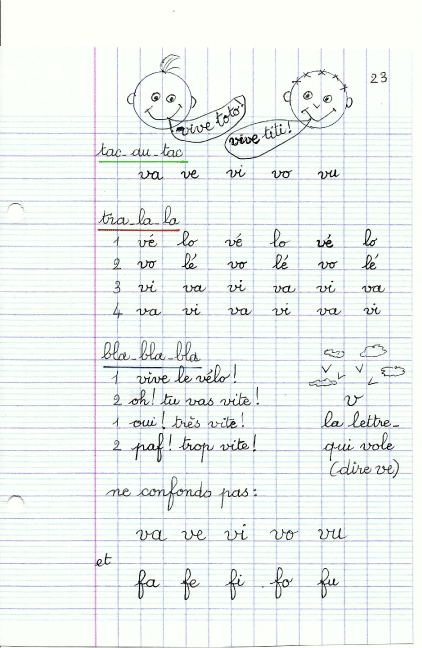 23
vive toto!
vive titi!
tac-au-tac
va ve vi vo vu
tra-la-la
1 vé lo vé lo vé lo
2 vo lé vo lé vo lé
3 vi va vi va vi va
4 va vi va vi va vi
bla-bla-bla
1 vive le vélo!
2 oh! tu vas vite!
1 oui! très vite!
2 paf! trop vite!
v
la lettre_
qui vole
(dire ve)
ne confonds pas:
va ve vi vo vu
et
fa fe fi fo fu